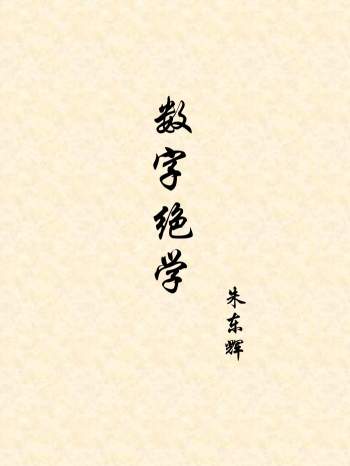 数字绝学
朱东辉